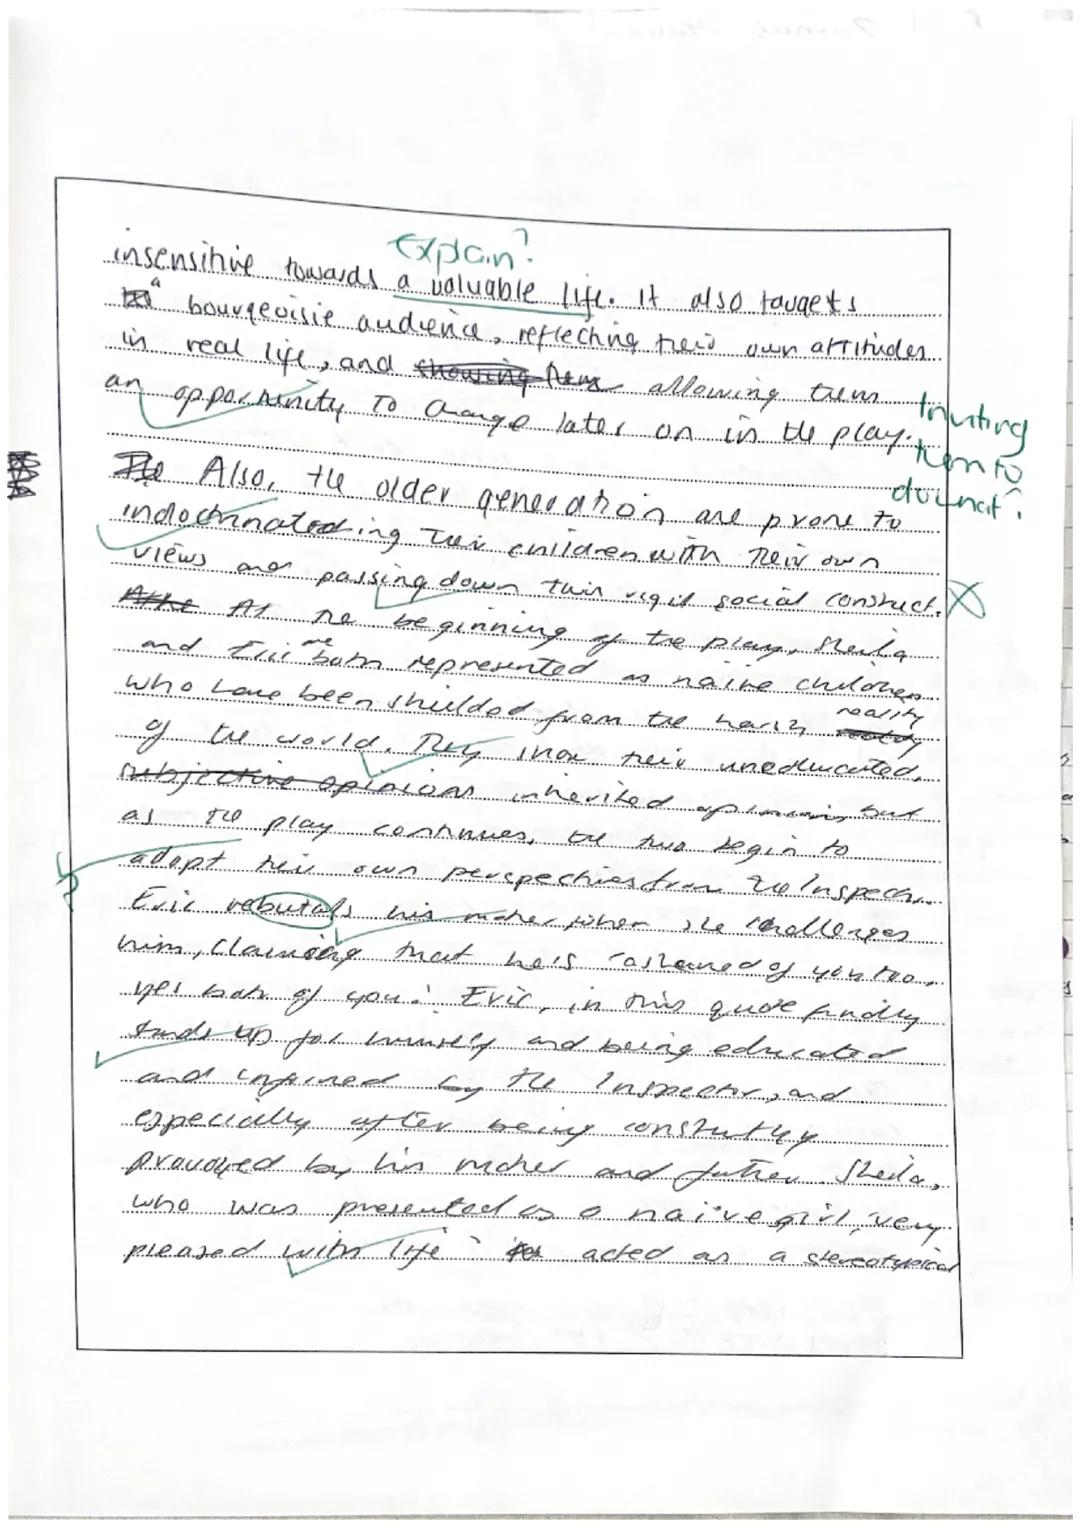 Explain?
insensitive towards a valuable life. It also taugets
a bourgeoisie audience, reflecting their own attitudes
in real life, and showing them allowing them
an opportunity to change later on in the play.
Inviting
them to
do what?
The Also, the older generation are prone to
indoctrinateding their children with their own
views and passing down their rigit social construct.
At the At the beginning of the play, Sheila
and Eric are both represented as naive children
who have been shielded from the harsh reality
of the world. They show their uneducated,
subjective opinions inherited opinions but
as the play continues, the two begin to
adopt their own perspectives from the Inspector.
Eric rebutals his mother when she challenges
him, claiming that he is "ashamed of you too,
yes both of you". Eric, in this quote finally
stands up for himself and being educated
and informed by the Inspector, and
especially after being constantly
provoyed by his mother and father. Sheila,
who was presented as a naive girl, "very
pleased with life" for acted as a stereotypical